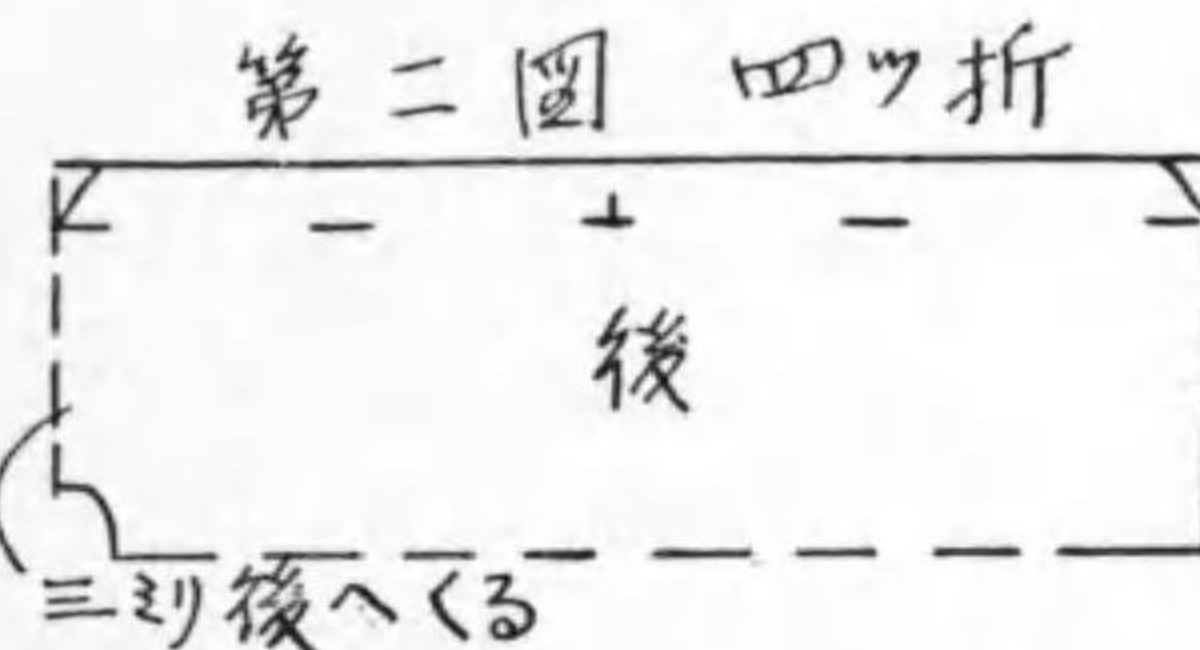 第二図 四ッ折
後
三ミリ後へくる